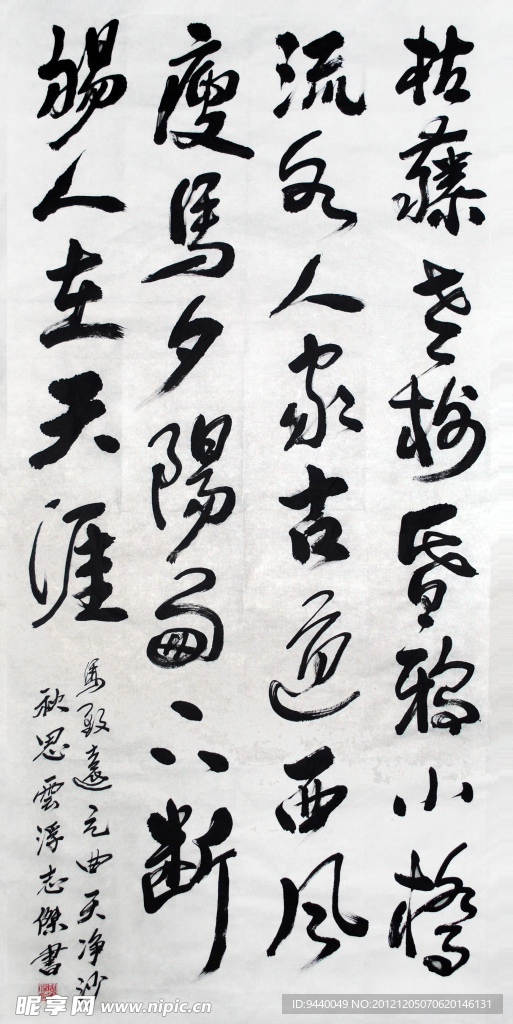 枯藤老树昏鸦小橋
流水人家古道西風
瘦馬夕陽西下断
腸人在天涯
馬致遠元曲天净沙
秋思雲浮志傑書
昵享网 www.nipic.cn
ID:9440049 NO:20121205070620146131